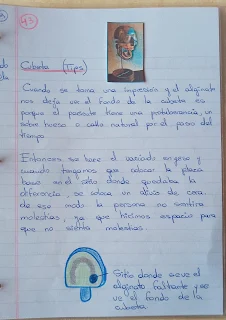 43
Cubeta (Tips)
Cuando se toma una impresión y el alginato
nos deja ver el fondo de la cubeta es
porque el paciente tiene una protuberancia, un
sobre hueso o callo natural por el paso del
tiempo
Entonces se hace el vaciado en yeso y
cuando tengamos que colocar la placa
base en el sitio donde quedaba la
diferencia, se coloca un alivio de cera
de ese modo la persona no sentira
molestias, ya que hicimos espacio para
que no sienta molestias.
Sitio donde
alginato faltante y se
ve el fondo de la
cubeta